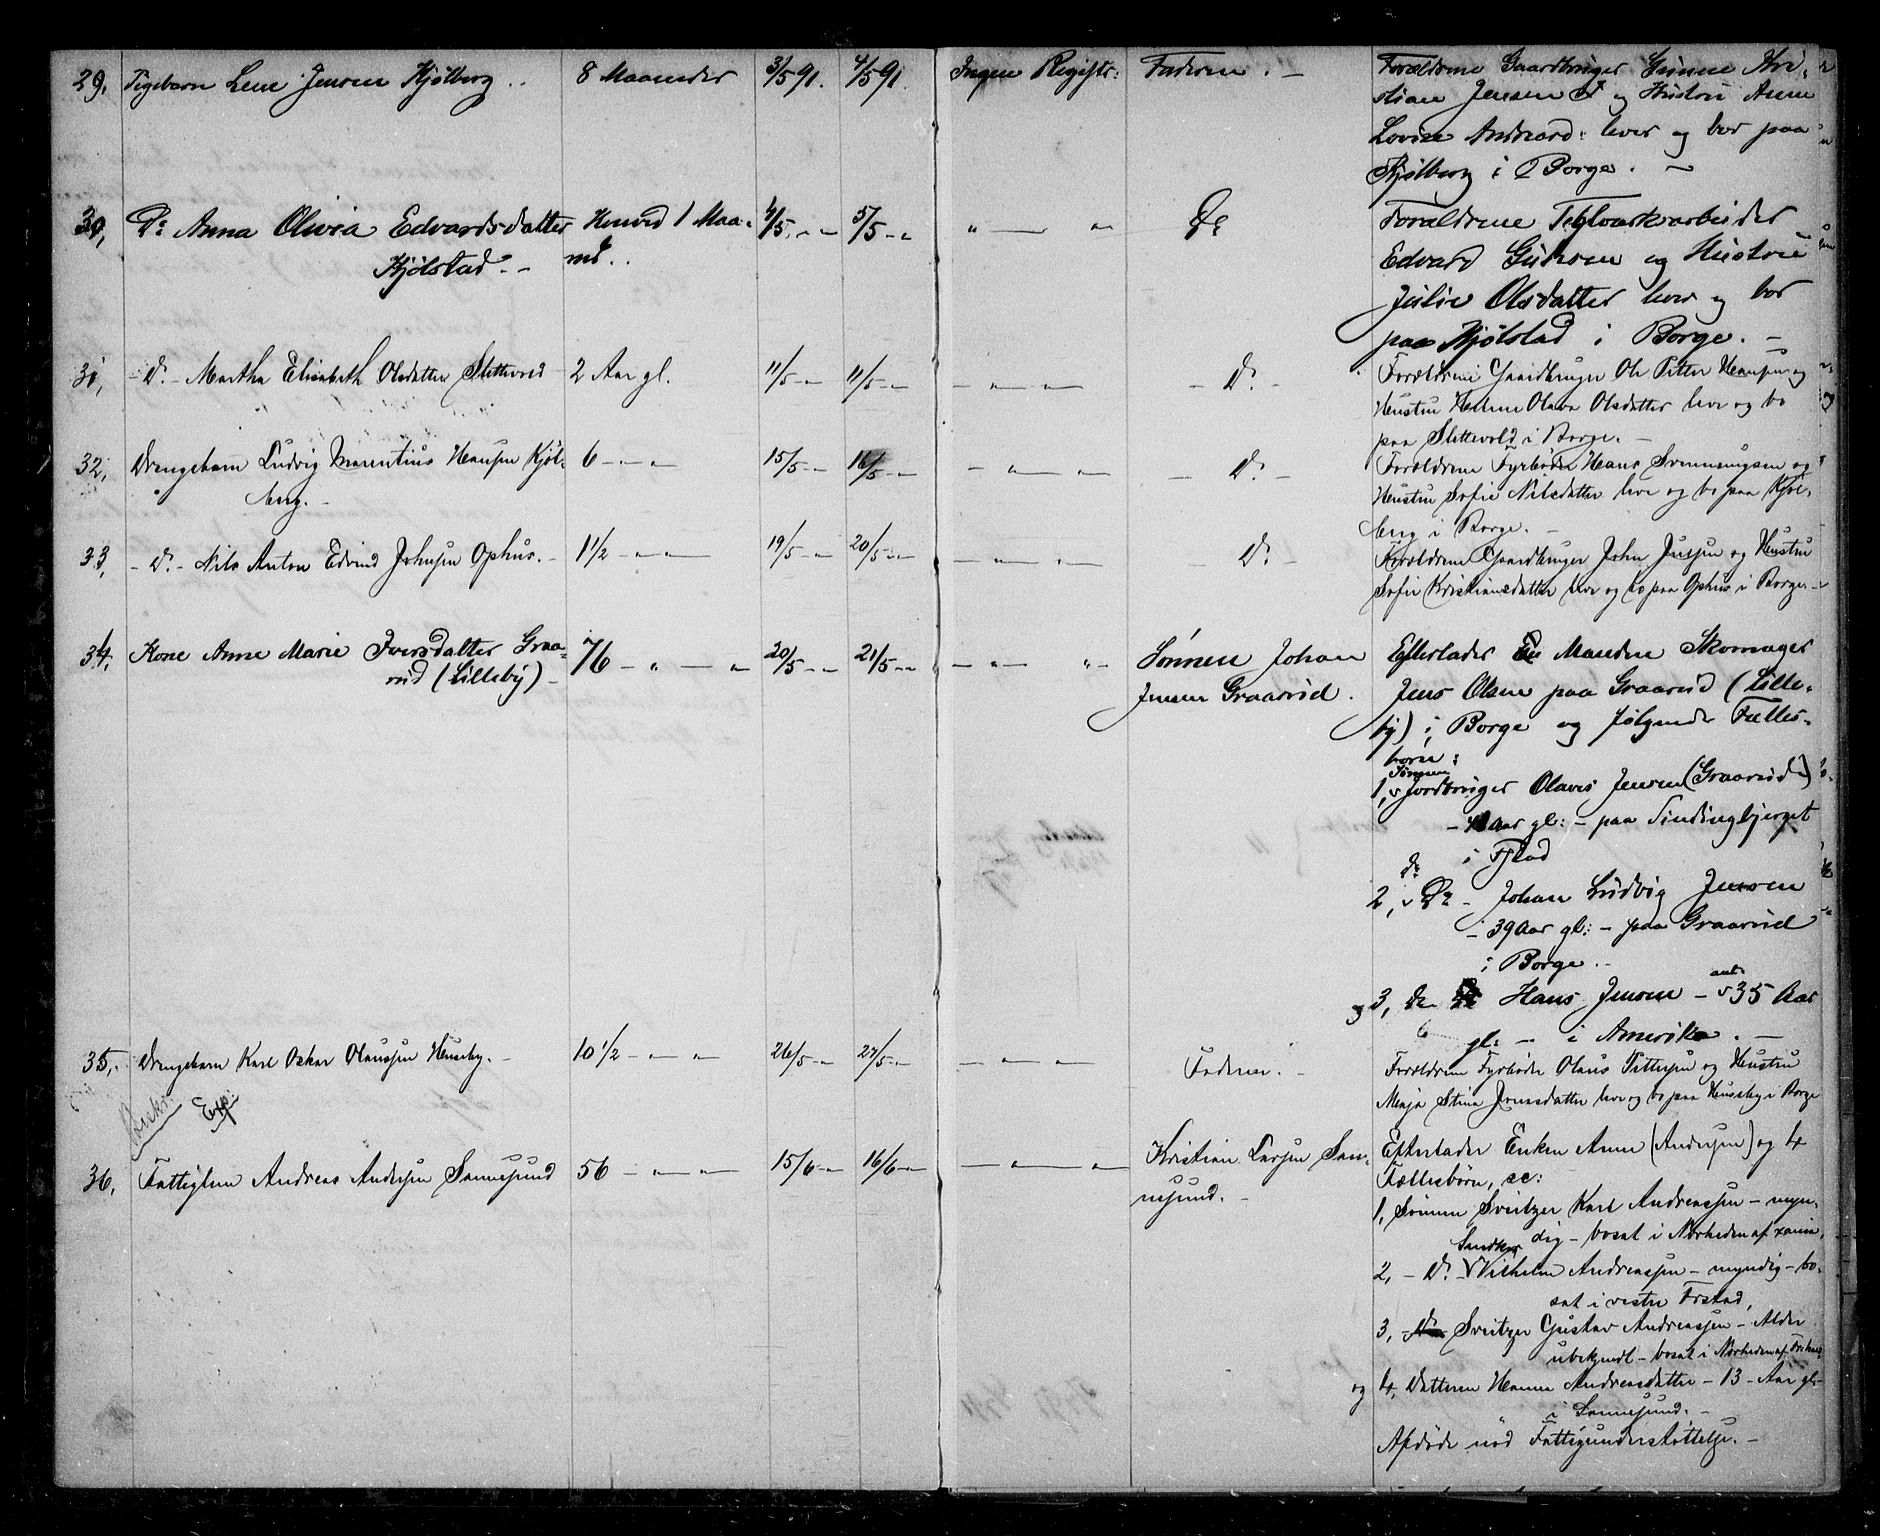 29, Pigebarn Lene Jensen Kjølberg . . 8 Maaneder 3/5 91. 4/5 91. Ingen Registr: Faderen . —
Forældrene Gaardbruger Gunne Kri-
stian Jensen og Hustru Anne
Lovise Andreasd: lever og bor paa
Kjølberg i Borge . —
30, Do Anna Olivia Edvardsdatter Henved 1 Maa- 4/5 - „ 5/5 - „ „ — „ Do
Kjølstad . — ned . .
Forældrene Teglværksarbeider
Edvard Gulsen og Hustru
Julie Olsdatter lever og bor
paa Kjølstad i Borge. —
31, - Do - Martha Elisabeth Olsdatter Slettevold 2 Aar gl. 11/5 - „ 11/5 - „ — „ — „ — Do -
Forældrene Gaardbruger Ole Petter Hansen og
Hustru Helene Olava Olsdatter leve og bo
paa Slettevold i Borge. —
32, Drengebarn Ludvig Marentius Hansen Kjøl- 6 - „ — „ 15/5 - „ 16/5 - „ — „ — „ — Do -
berg. —
Forældrene Fyrbøder Hans Svenningsen og
Hustru Sofie Nilsdatter leve og bo paa Kjøl-
berg i Borge. —
33, - Do - Nils Anton Edvind Johnsen Ophus. — 1 1/2 - „ — „ 19/5 - „ 20/5 - „ — „ — „ — Do -
Forældrene Gaardbruger John Jensen og Hustru
Sofie Kristiansdatter leve og bo paa Ophus i Borge. —
34, Kone Anne Marie Iversdatter Graa- 76 - „ — „ 20/5 - „ 21/5 - „ — „ — „ - Sønnen Johan
rød (Lilleby) — Jensen Graarød .
Efterlader Manden Skomager
Jens Olsen paa Graarød (Lille-
by) i Borge og følgende Fælles-
børn:
Sønnen
1, Jordbruger Olaves Jensen (Graarød)
- Aar gl: - paa Sindingbjerget
i
Do
2, Do - Johan Ludvig Jensen
- 39 Aar gl: - paa Graarød
i Borge . -
ant.
og 3, Do Hans Jensen - 35 Aar
gl: - i Amerika . —
35, Drengebarn Karl Oskar Olaussen Huseby. — 10 1/2 - „ — „ 26/5 - „ 27/5 - „ — „ — „ Faderen. —
Forældrene Fyrbøder Olaus Pettersen og Hustru
Maja Stina Jonasdatter leve og bo paa Huseby i Borge
Exp:
36, Fattiglem Andreas Andersen Sannesund 56 - „ — „ 15/6 - „ 16/6 - „ — „ — „ — Kristian Larsen San-
nesund. —
Efterlader Enken Anne (Andersen) og 4
Fællesbørn, sc:
1, Sønnen Sveitzer Karl Andreassen - myn-
dig - bosat i Nærheden af
2, - Do - Vilhelm Andreassen - myndig - bo-
sat i vestre
3, Sveitzer Gustav Andreassen - Alder
ubekjendt - bosat i Nærheden af
og 4, Datteren Hanna Andreasdatter - 13 - Aar gl-
i Sannesund. —
Afdøde nød Fattigunderstøttelse. —